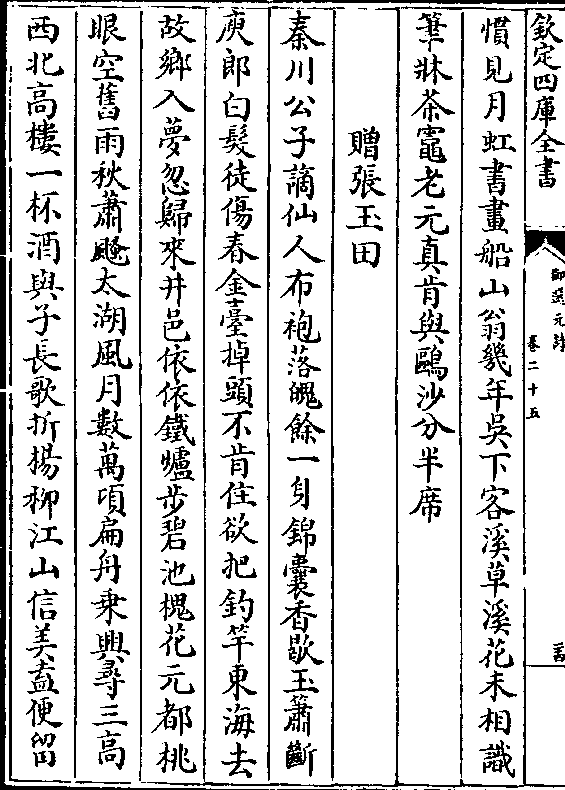 欽定四庫全書
御選元詩
卷二十五
慣見月虹書畫船山翁幾年吳下客溪草溪花未相識
筆牀茶竈老元真肯與鷗沙分半席
贈張玉田
秦川公子謫仙人布袍落魄餘一身錦囊香歇玉簫斷
庾郎白髮徒傷春金臺掉頭不肯住欲把釣竿東海去
故鄉入夢忽歸來井邑依依鐵爐步碧池槐花元都桃
眼空舊雨秋蕭颼太湖風月數萬頃扁舟乘興尋三高
西北高樓一杯酒與子長歌折楊柳江山信美盍便留